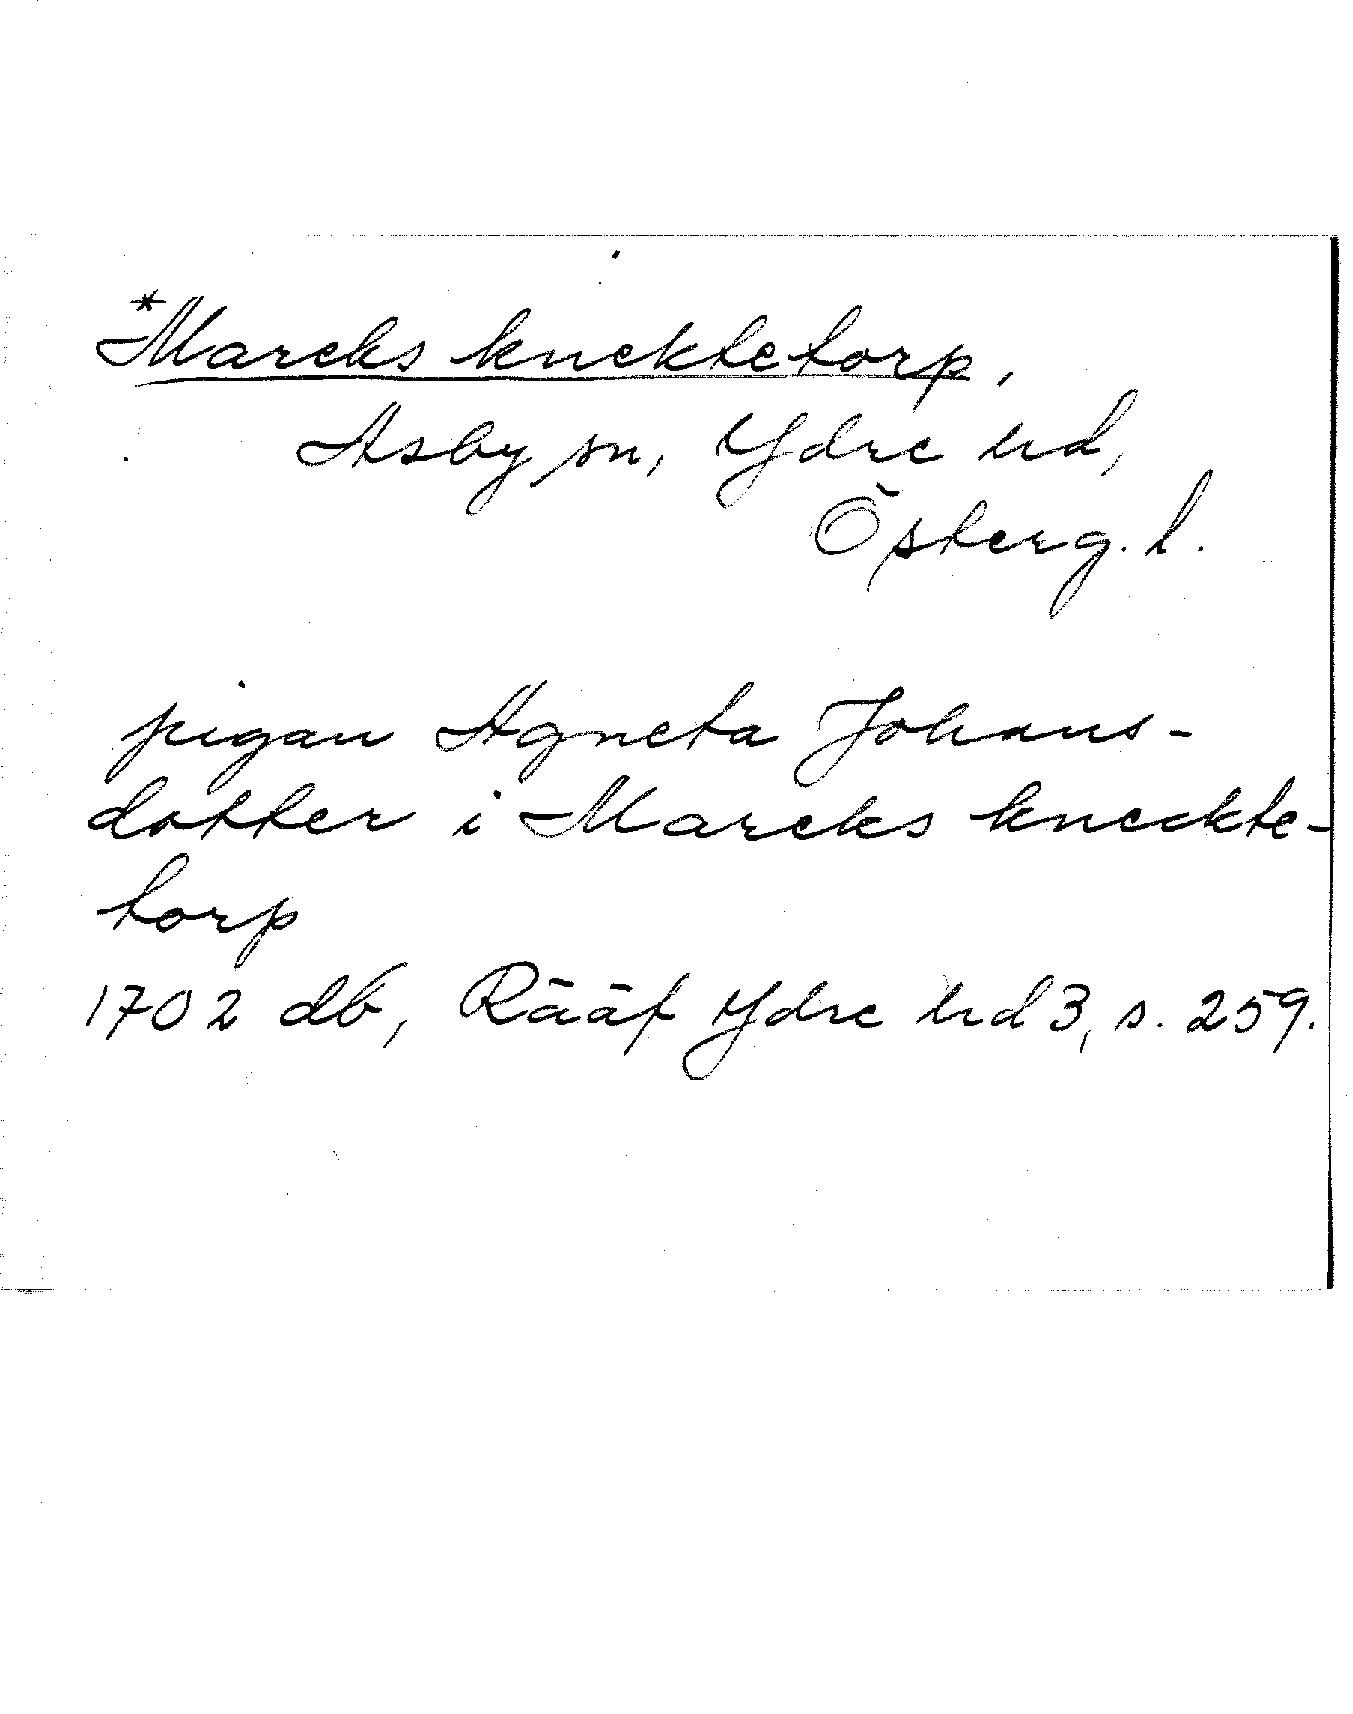 *Marcks knecktetorp.
Asby sn, Ydre hd,
Österg. l.
pigan Agneta Johans-
dotter i Marcks kneckte-
torp
1702 db, Rääf Ydre hd 3, s. 259.